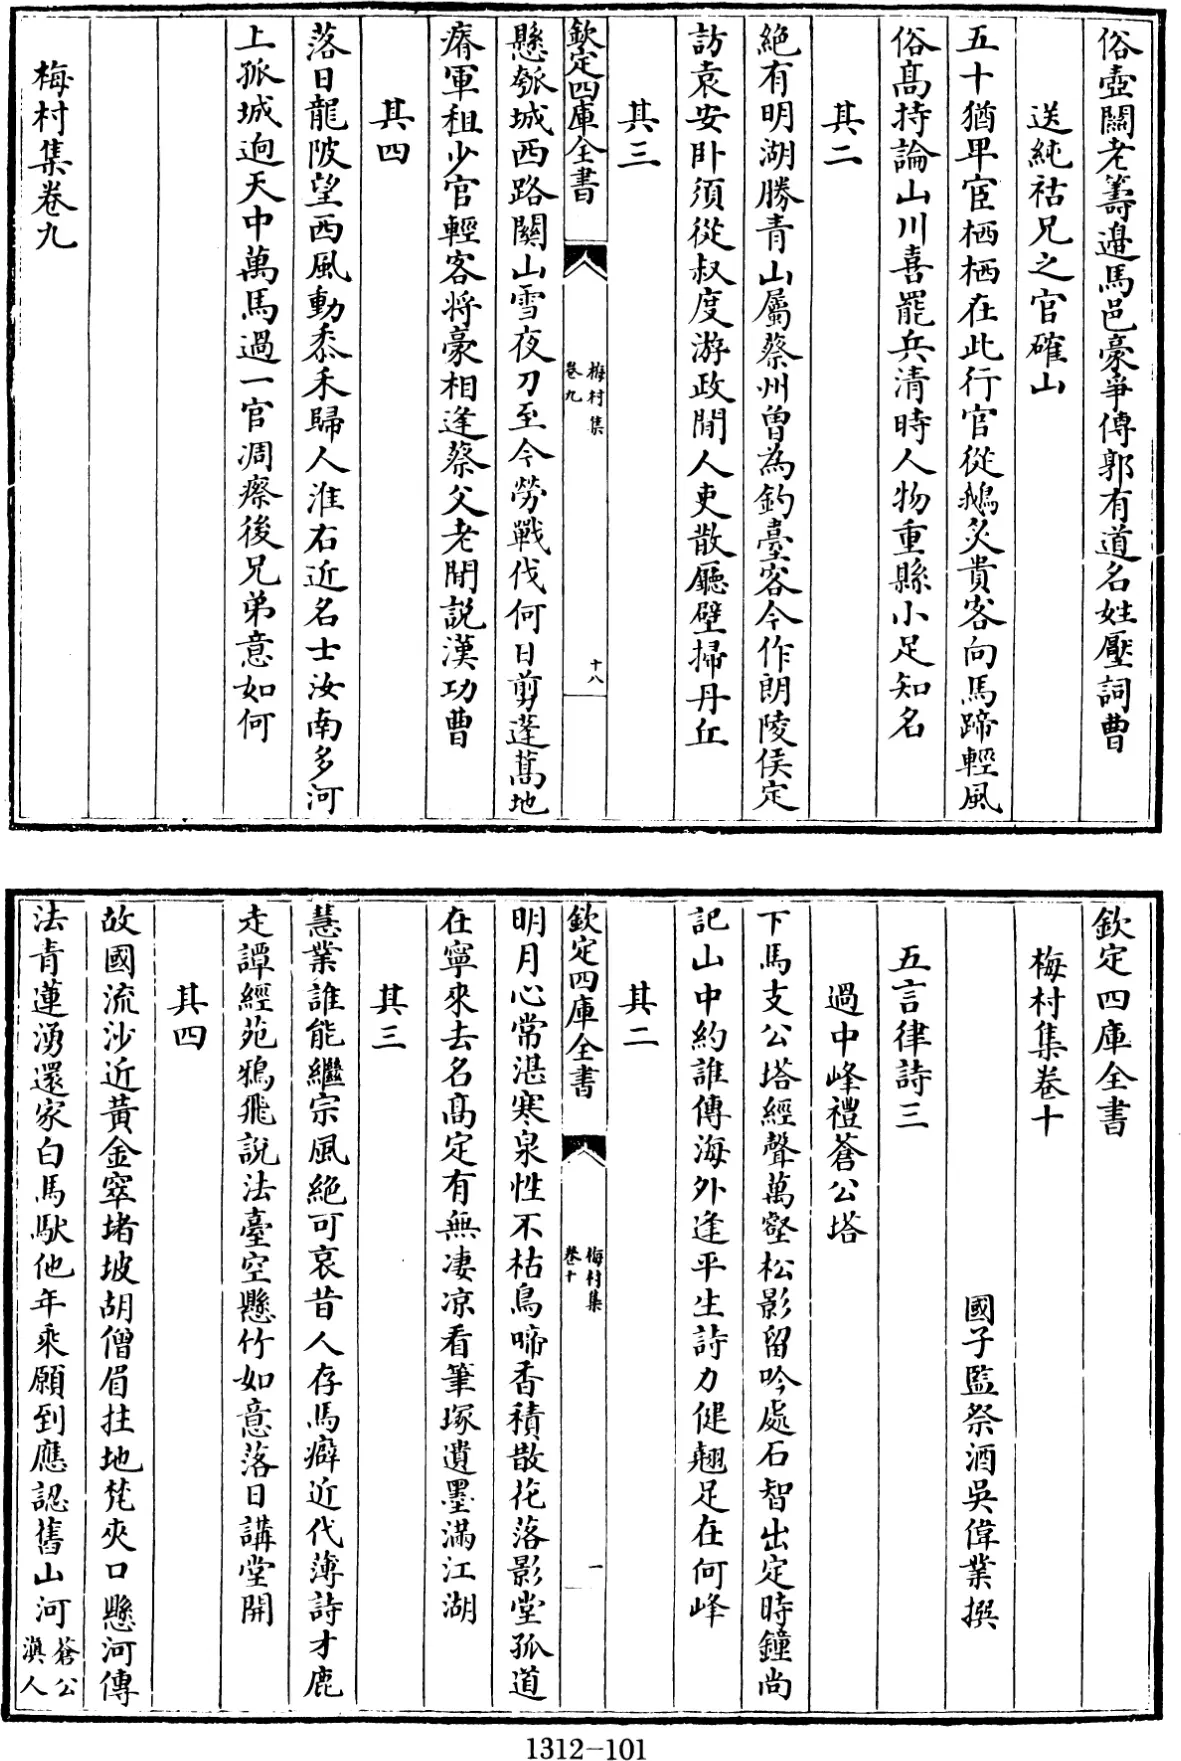 俗壺關老籌邉馬邑豪爭傳郭有道名姓壓詞曹
送純祜兄之官確山
五十猶卑宦栖栖在此行官從鵝炙貴客向馬蹄輕風
俗髙持論山川喜罷兵清時人物重縣小足知名
其二
絶有明湖勝青山屬蔡州曽為釣臺客今作朗陵侯定
訪袁安卧須從叔度游政閒人吏散廳壁掃丹丘
其三
欽定四庫全書
梅村集
卷九
十八
懸瓠城西路關山雪夜刀至今勞戰伐何日剪蓬蒿地
瘠軍租少官輕客將豪相逢蔡父老閒説漢功曹
其四
落日龍陂望西風動黍禾歸人淮右近名士汝南多河
上孤城逈天中萬馬過一官凋瘵後兄弟意如何
梅村集卷九
欽定四庫全書
梅村集卷十
國子監祭酒吳偉業撰
五言律詩三
過中峰禮蒼公塔
下馬支公塔經聲萬壑松影留吟處石智出定時鐘尚
記山中約誰傳海外逢平生詩力健翹足在何峰
其二
欽定四庫全書
梅村集
卷十
一
明月心常湛寒泉性不枯鳥啼香積散花落影堂孤道
在寧來去名髙定有無凄凉看筆塚遺墨滿江湖
其三
慧業誰能繼宗風絶可哀昔人存馬癖近代薄詩才鹿
走譚經苑鴉飛説法臺空懸竹如意落日講堂開
其四
故國流沙近黃金窣堵坡胡僧眉拄地梵夾口懸河傳
法青蓮湧還家白馬馱他年乘願到應認舊山河蒼公
滇人
1312-101